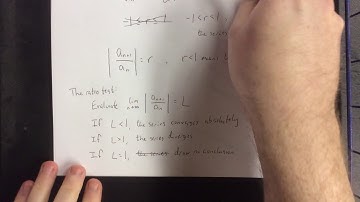 -1 ≤ r ≤ 1 -1 < r < 1,
the series
|aₙ₊₁/aₙ| = r, r<1 means
The ratio test:
Evaluate lim n→∞ |aₙ₊₁/aₙ| = L
If L<1, the series converges absolutely
If L>1, the series diverges
If L=1, the series draw no conclusion